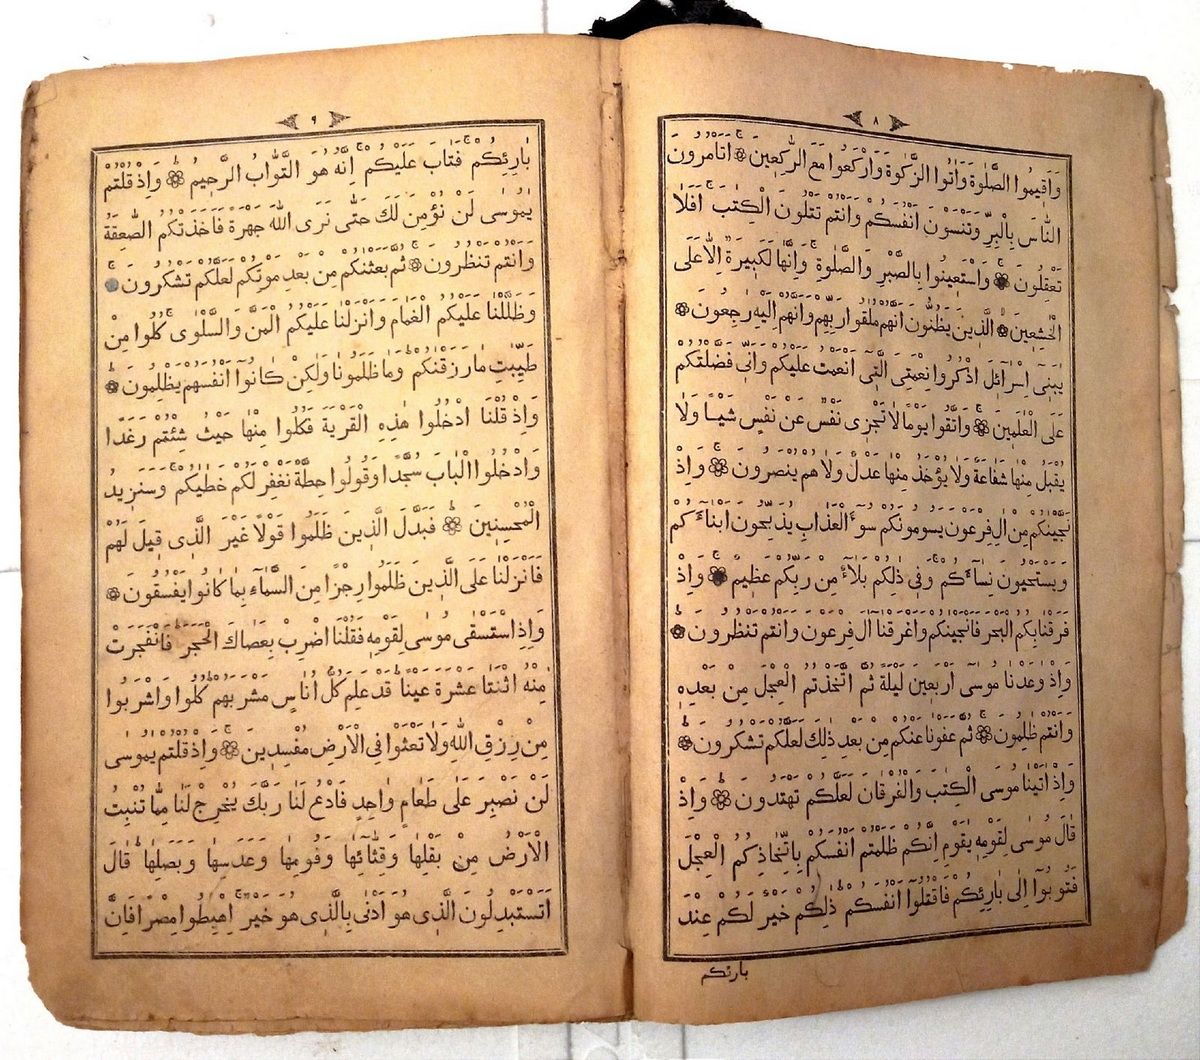 ٨
وَاَقٖيمُوا الصَّلٰوةَ وَاٰتُوا الزَّكٰوةَ وَارْكَعُوا مَعَ الرَّاكِعٖينَ ۞ اَتَاْمُرُونَ
النَّاسَ بِالْبِرِّ وَتَنْسَوْنَ اَنْفُسَكُمْ وَاَنْتُمْ تَتْلُونَ الْكِتَابَ ۚ اَفَلَا
تَعْقِلُونَ ۞ وَاسْتَعٖينُوا بِالصَّبْرِ وَالصَّلٰوةِ ۚ وَاِنَّهَا لَكَبٖيرَةٌ اِلَّا عَلَى
الْخَاشِعٖينَ ۞ اَلَّذٖينَ يَظُنُّونَ اَنَّهُمْ مُلَاقُوا رَبِّهِمْ وَاَنَّهُمْ اِلَيْهِ رَاجِعُونَ ۞
يَابَنٖٓى اِسْرَٓائٖلَ اذْكُرُوا نِعْمَتِىَ الَّتٖٓى اَنْعَمْتُ عَلَيْكُمْ وَاَنّٖى فَضَّلْتُكُمْ
عَلَى الْعَالَمٖينَ ۞ وَاتَّقُوا يَوْمًا لَا تَجْزٖى نَفْسٌ عَنْ نَفْسٍ شَيْـًٔا وَلَا
يُقْبَلُ مِنْهَا شَفَاعَةٌ وَلَا يُؤْخَذُ مِنْهَا عَدْلٌ وَلَا هُمْ يُنْصَرُونَ ۞ وَاِذْ
نَجَّيْنَاكُمْ مِنْ اٰلِ فِرْعَوْنَ يَسُومُونَكُمْ سُٓوءَ الْعَذَابِ يُذَبِّحُونَ اَبْنَٓاءَكُمْ
وَيَسْتَحْيُونَ نِسَٓاءَكُمْ ۚ وَفٖى ذٰلِكُمْ بَلَٓاءٌ مِنْ رَبِّكُمْ عَظٖيمٌ ۞ وَاِذْ
فَرَقْنَا بِكُمُ الْبَحْرَ فَاَنْجَيْنَاكُمْ وَاَغْرَقْنَٓا اٰلَ فِرْعَوْنَ وَاَنْتُمْ تَنْظُرُونَ ۞
وَاِذْ وٰعَدْنَا مُوسٰٓى اَرْبَعٖينَ لَيْلَةً ثُمَّ اتَّخَذْتُمُ الْعِجْلَ مِنْ بَعْدِهٖ
وَاَنْتُمْ ظَالِمُونَ ۞ ثُمَّ عَفَوْنَا عَنْكُمْ مِنْ بَعْدِ ذٰلِكَ لَعَلَّكُمْ تَشْكُرُونَ ۞
وَاِذْ اٰتَيْنَا مُوسَى الْكِتَابَ وَالْفُرْقَانَ لَعَلَّكُمْ تَهْتَدُونَ ۞ وَاِذْ
قَالَ مُوسٰى لِقَوْمِهٖ يَاقَوْمِ اِنَّكُمْ ظَلَمْتُمْ اَنْفُسَكُمْ بِاتِّخَاذِكُمُ الْعِجْلَ
فَتُوبُٓوا اِلٰى بَارِئِكُمْ فَاقْتُلُٓوا اَنْفُسَكُمْ ۜ ذٰلِكُمْ خَيْرٌ لَكُمْ عِنْدَ
بارئكم
٩
بَارِئِكُمْ ۚ فَتَابَ عَلَيْكُمْ ۚ اِنَّهُ هُوَ التَّوَّابُ الرَّحٖيمُ ۞ وَاِذْ قُلْتُمْ
يَامُوسٰى لَنْ نُؤْمِنَ لَكَ حَتّٰى نَرَى اللّٰهَ جَهْرَةً فَاَخَذَتْكُمُ الصَّاعِقَةُ
وَاَنْتُمْ تَنْظُرُونَ ۞ ثُمَّ بَعَثْنَاكُمْ مِنْ بَعْدِ مَوْتِكُمْ لَعَلَّكُمْ تَشْكُرُونَ ۞
وَظَلَّلْنَا عَلَيْكُمُ الْغَمَامَ وَاَنْزَلْنَا عَلَيْكُمُ الْمَنَّ وَالسَّلْوٰى ۚ كُلُوا مِنْ
طَيِّبَاتِ مَا رَزَقْنَاكُمْ ۜ وَمَا ظَلَمُونَا وَلٰكِنْ كَانُٓوا اَنْفُسَهُمْ يَظْلِمُونَ ۞
وَاِذْ قُلْنَا ادْخُلُوا هٰذِهِ الْقَرْيَةَ فَكُلُوا مِنْهَا حَيْثُ شِئْتُمْ رَغَدًا
وَادْخُلُوا الْبَابَ سُجَّدًا وَقُولُوا حِطَّةٌ نَغْفِرْ لَكُمْ خَطَايَاكُمْ ۚ وَسَنَزٖيدُ
الْمُحْسِنٖينَ ۞ فَبَدَّلَ الَّذٖينَ ظَلَمُوا قَوْلًا غَيْرَ الَّذٖى قٖيلَ لَهُمْ
فَاَنْزَلْنَا عَلَى الَّذٖينَ ظَلَمُوا رِجْزًا مِنَ السَّمَٓاءِ بِمَا كَانُوا يَفْسُقُونَ ۞
وَاِذِ اسْتَسْقٰى مُوسٰى لِقَوْمِهٖ فَقُلْنَا اضْرِبْ بِعَصَاكَ الْحَجَرَ ۜ فَانْفَجَرَتْ
مِنْهُ اثْنَتَا عَشْرَةَ عَيْنًا ۜ قَدْ عَلِمَ كُلُّ اُنَاسٍ مَشْرَبَهُمْ ۜ كُلُوا وَاشْرَبُوا
مِنْ رِزْقِ اللّٰهِ وَلَا تَعْثَوْا فِى الْاَرْضِ مُفْسِدٖينَ ۞ وَاِذْ قُلْتُمْ يَامُوسٰى
لَنْ نَصْبِرَ عَلٰى طَعَامٍ وَاحِدٍ فَادْعُ لَنَا رَبَّكَ يُخْرِجْ لَنَا مِمَّا تُنْبِتُ
الْاَرْضُ مِنْ بَقْلِهَا وَقِثَّٓائِهَا وَفُومِهَا وَعَدَسِهَا وَبَصَلِهَا ۜ قَالَ
اَتَسْتَبْدِلُونَ الَّذٖى هُوَ اَدْنٰى بِالَّذٖى هُوَ خَيْرٌ ۜ اِهْبِطُوا مِصْرًا فَاِنَّ